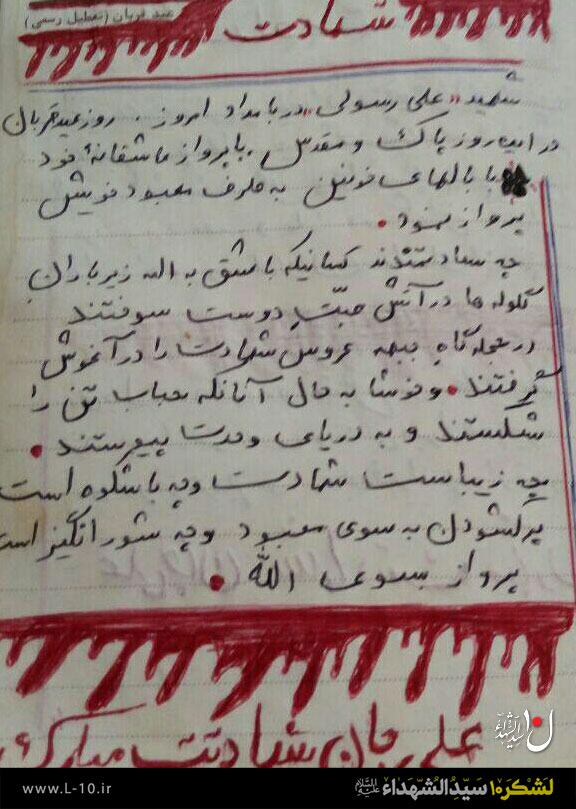 عید قربان (تعطیل رسمی)
شهادت
شهید «علی رسولی» در بامداد امروز . روز عید قربان
در این روز پاک و مقدس . با پرواز عاشقانهٔ خود
با بالهای خونین به طرف معبود خویش
پرواز نمود .
چه سعادتمندند کسانیکه با عشق به الله زیر باران
گلوله ها در آتش محبّتِ دوست سوختند
در حجله گاهِ جبهه عروس شهادت را در آغوش
گرفتند . و خوشا به حال آنانکه حباب تن را
شکستند و به دریای وحدت پیوستند .
چه زیباست شهادت وچه با شکوه است
پرگشودن به سوی معبود وچه شورانگیز است
پرواز بسوی الله .
علی جان شهادتت مبارک
www.L-10.ir
لشکر۱۰ سیدالشهداء